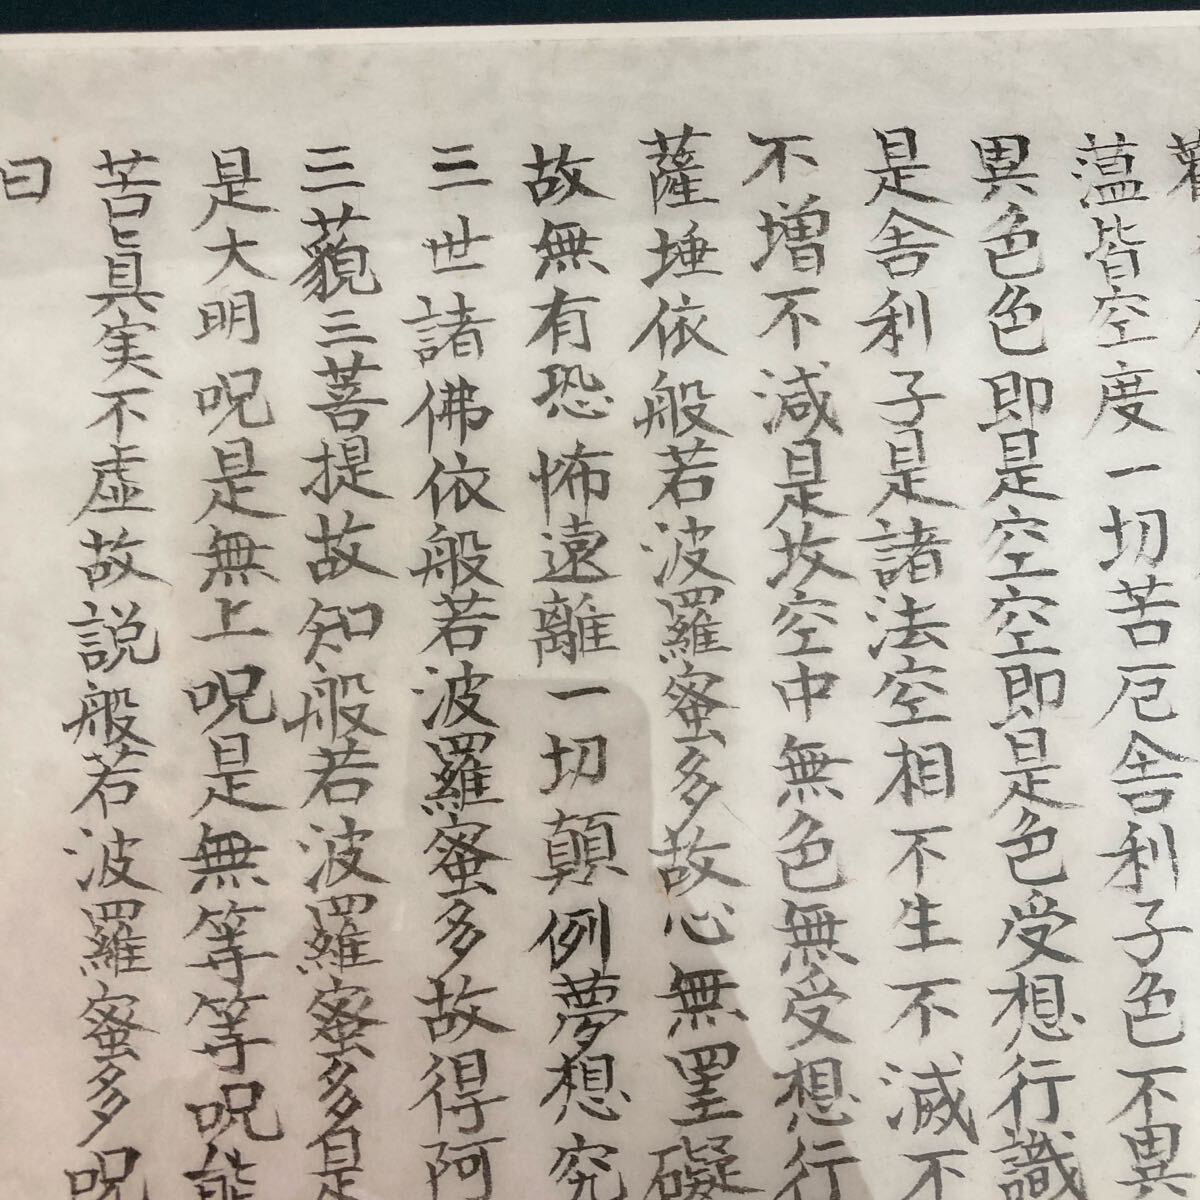 蕰皆空度一切苦厄舎利子色不異
異色色即是空空即是色受想行識
是舎利子是諸法空相不生不滅不
不増不減是故空中無色無受想行
薩埵依般若波羅蜜多故心無罣礙
故無有恐怖遠離一切顛倒夢想究
三世諸佛依般若波羅蜜多故得阿
三藐三菩提故知般若波羅蜜多是
是大明呪是無上呪是無等等呪能
苦眞実不虚故説般若波羅蜜多呪
曰